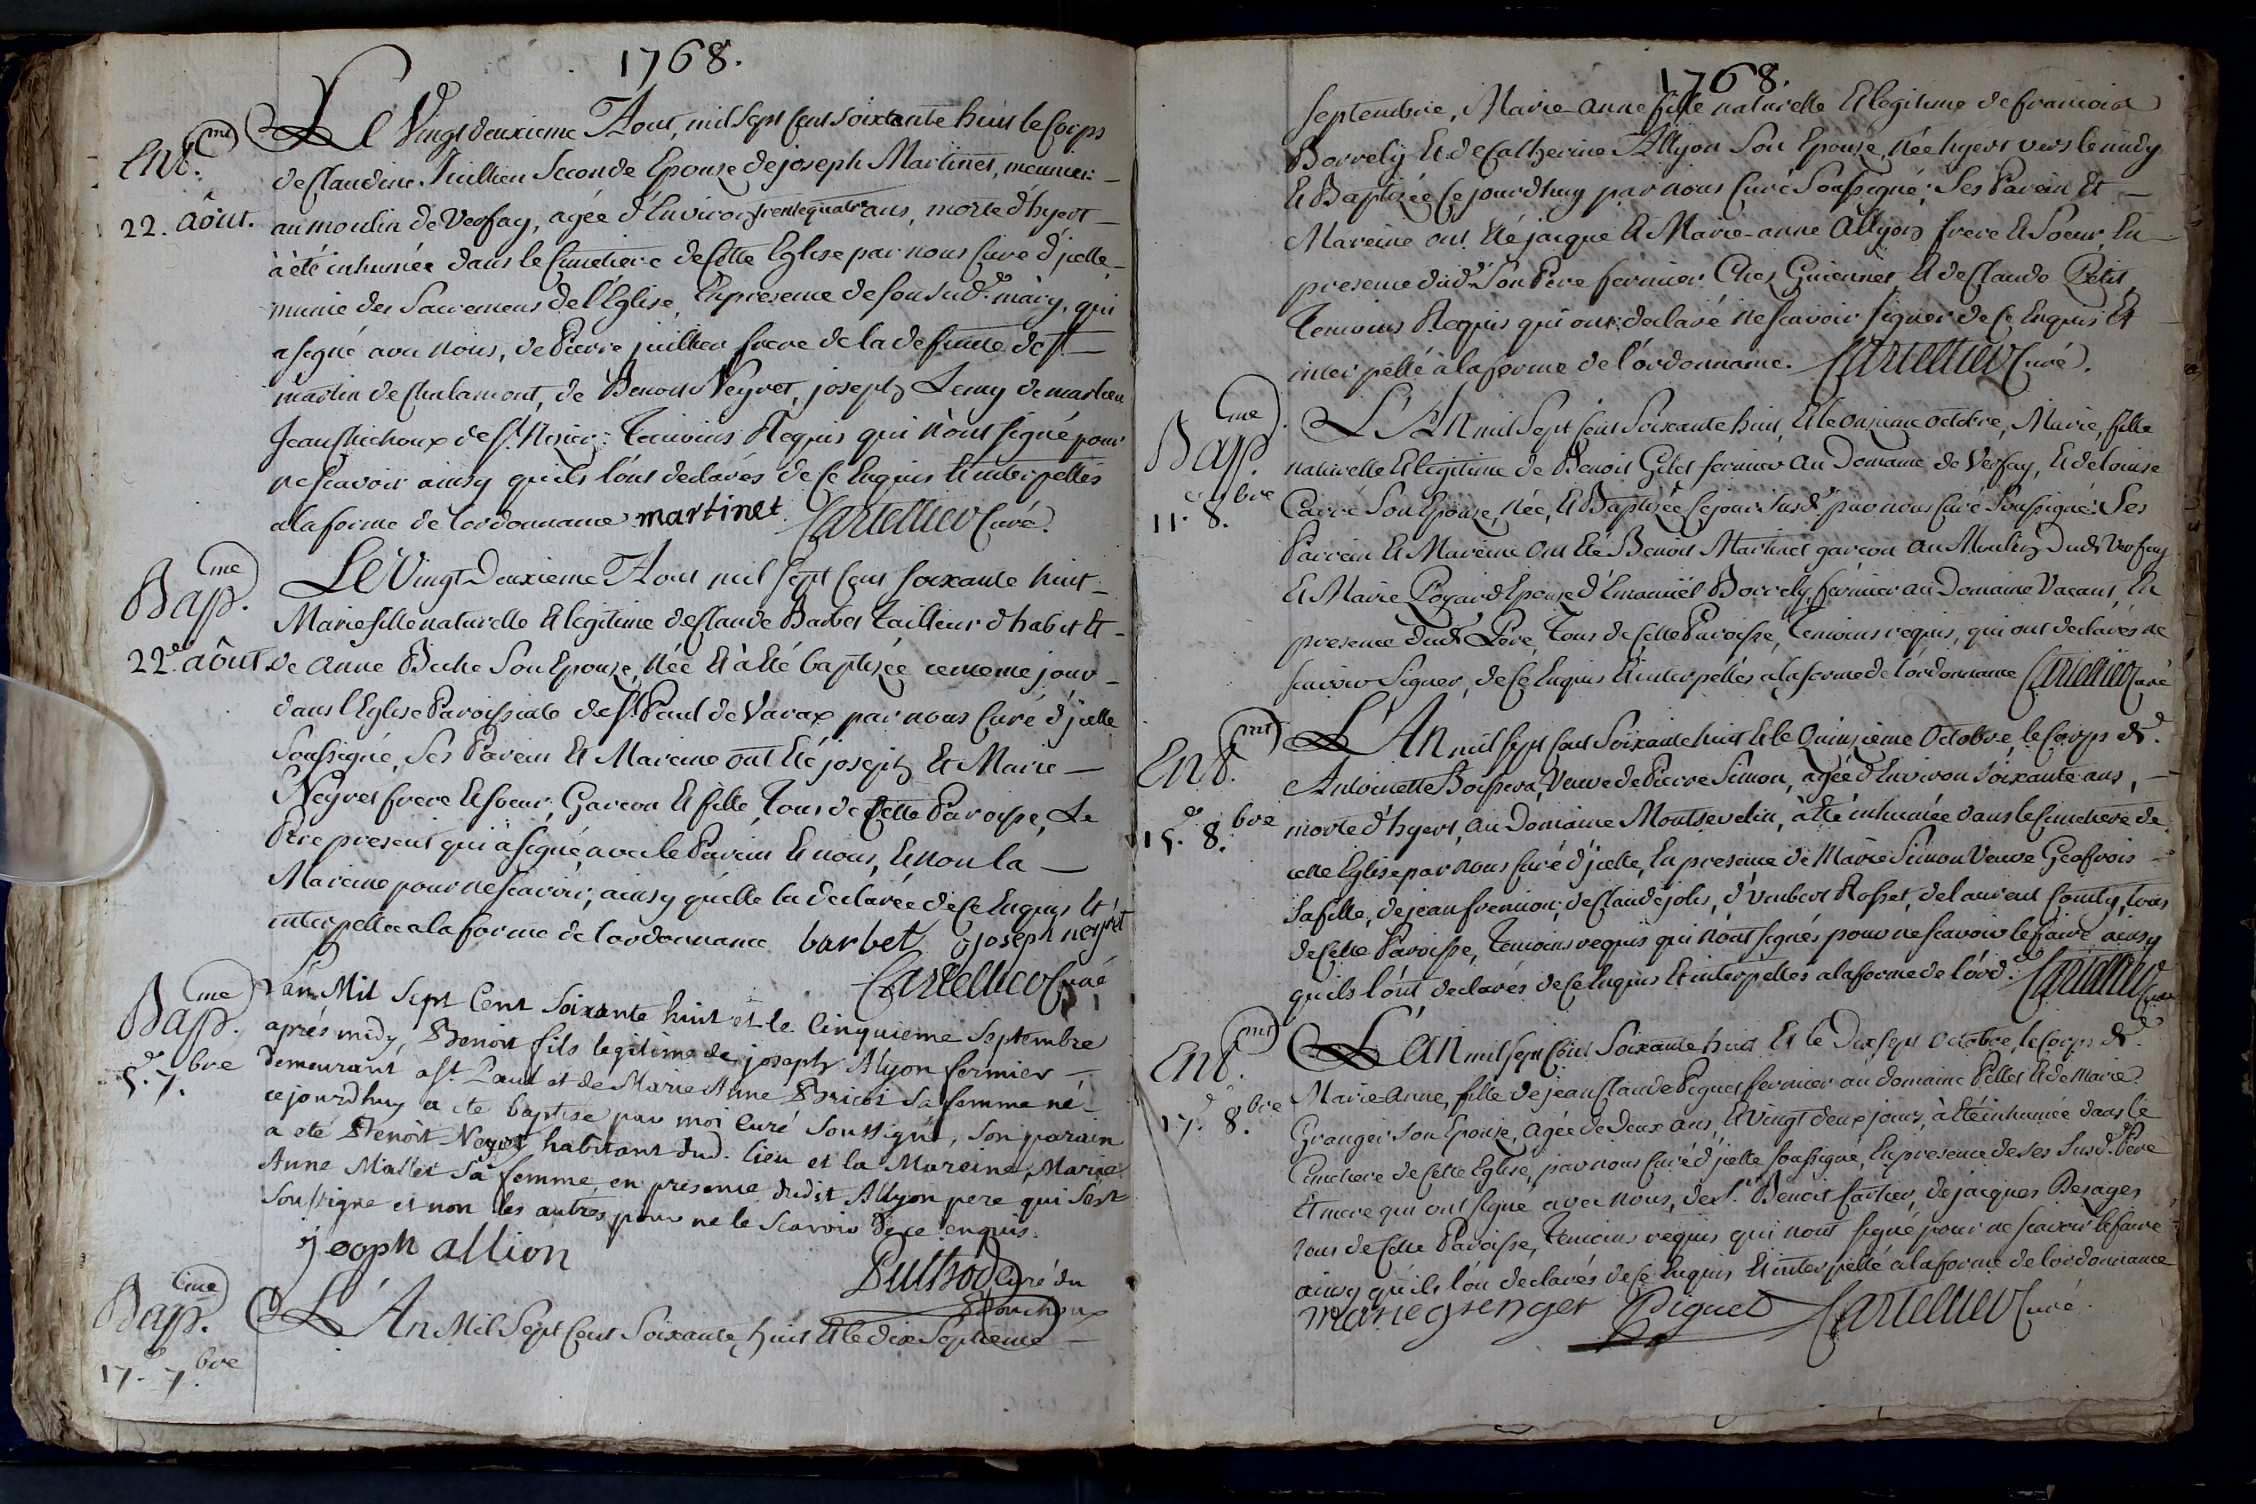 1768.
Ent.mt
22. aôut.
Le Vingt deuxieme Aout, mil sept cent soixante huit le Corps
de Claudine Juillien Seconde Epouse de joseph Martinet, meunier
au moulin de Verfay, agée d'Environ trente quatre ans, morte d'hyert
à été inhumée dans le Cimetiere de Cette Eglise par nous Curé d'jcelle
munie des Sacremens de l'Eglise, En presence de son sud. mary, qui
a signé avec nous, de Pierre juillien frere de la defunte de St
martin de Chalamont, de Benoit Neyret, joseph de marlieu
Jean Michoux de St. Nizier: Temoins Requis qui n'ont signé pour
ne scavoir ainsy qu'ils l'ont declarés de Ce Enquis Et interpellés
a la forme de lordonnance martinet. Cartellier Curé.
Bap.me
22e. aôut
Le Vingt Deuxieme Aout mil sept cent soixante huit
Marie fille naturelle Et legitime de Claude Barbet tailleur d'habit Et
de anne Buche Son Epouse, Née Et à Eté baptisée ce meme jour
dans l'Eglise Paroissiale de St. Paul de Varax par nous Curé d'jcelle
soussigné, Ses Parein Et Mareine ont Eté joseph Et Marie
Neyret frere Et soeur, Garcon Et fille, Tous de Cette Paroisse, Le
Pere present qui à signé avec le Parein Et nous, Et non la
Mareine pour ne scavoir, ainsy qu'elle la declarée de Ce Enquis Et
interpellée a la forme de lordonnance barbet joseph neyret
Cartellier Curé
Bap.me
5.e 7.bre
L'an Mil Sept Cent Soixante huit et le Cinquieme Septembre
aprés midy Benoit fils legitime de joseph Alyon fermier
demeurant a St. Paul et de Marie Anne Bricot sa femme né
ce jourdhuy a ete baptise par moi Curé Soussigné, son parain
a eté Benoit Neyret habitant dud. lieu et la Mareine, Marie
Anne Mallet sa femme en presence dudit Allyon pere qui s'est
soussigne et non les autres pour ne le Scavoir de ce enquis.
joseph allion
Curé du
Plouchoux
Bap.me
17.e 7.bre
L'An Mil Sept Cent Soixante huit Et le dix Septieme
1768.
Septembre, Marie anne fille naturelle Et legitime de francois
Borrely Et de Catherine Allyon Son Epouse, Née hyert vers le midy
Et Baptizée Ce jourdhuy par nous Curé Soussigné; Ses Parein Et
Mareine ont Eté jacque Et Marie-anne Allyon frere Et Soeur, En
presence dud. Son Pere fermier Ches Guiennet, Et de Claude Petit,
Temoins Requis qui ont declaré ne scavoir signer de Ce Enquis Et
interpellé à la forme de l'ordonnance. Cartellier Curé.
Bap.me
11. 8.bre
L'An mil Sept Cent Soixante huit, Et le onzieme octobre, Marie, fille
naturelle Et legitime de Benoit Gilet fermier au Domaine de Verfay, Et de louise
Carré Son Epouse, Née, Et Baptisée Ce jour susd. par nous Curé Soussigné: Ses
Parein Et Mareine ont Eté Benoit Martinet garcon au Moulin Dud. Verfay
Et Marie Poyard Epouse d'Emanuël Borrely, fermier au Domaine Vacant, En
presence dud. Pere, Tous de Cette Paroisse, Temoins requis, qui ont declarés ne
scavoir Signer, de Ce Enquis Et interpellés a la forme de l'ordonnance Cartellier Curé
Ent.mt
15.e 8.bre
L'An mil sept cent Soixante huit Et le Quinzieme Octobre, le Corps d'
Antoinette Veuve de Pierre Simon, agée d'Environ soixante ans,
morte d'hyert, au Domaine Montsevelin, à Eté inhumée dans le Cimetiere de
cette Eglise par nous Curé d'jcelle, En presence de Marie Simon Veuve Geofrois
sa fille, de jean fremion, de Claude jolis, d'Imbert Rosset, de laurent Comty, tous
de Cette Paroisse, Temoins requis qui n'ont signés pour ne scavoir le faire ainsy
qu'ils l'ont declarés de Ce Enquis Et interpellés a la forme de l'ord. Cartellier Curé
Ent.mt
17.e 8.bre
L'An mil sept cent Soixante huit Et le Dix sept octobre, le Corps de
Marie-Anne, fille de jean Claude Piquet fermier au domaine Pellet Et de Marie
Granger Son Epouse, Agée de Deux ans, Et Vingt deux jours, à Eté inhumée dans le
Cimetiere de Cette Eglise, par nous Curé d'jcelle soussigné, En presence de ses susd. Pere
Et mere qui ont signé avec nous, de Sr. Benoit fartier, de jacques Besages
tous de Cette Paroisse, Temoins requis qui n'ont signé pour ne scavoir le faire
ainsy qu'ils l'on declarés de Ce Enquis Et interpellé a la forme de lordonnance
marie grenger Piguet Cartellier Curé.